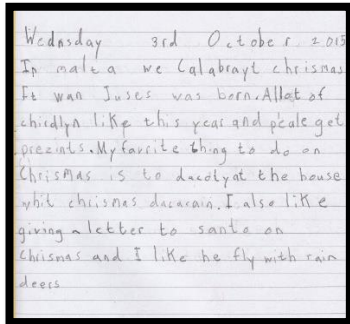 Wednsday 3rd October 2015
In malta we Calabrayt chrismas
It wan Juses was born. Allat of
chirdlyn like this year and peale get
prezints. My favrite thing to do on
Chrismas is to dacotyat the house
whit chrismas dacarain. I also like
giving a letter to santa on
chrismas and I like he fly with rain
deers